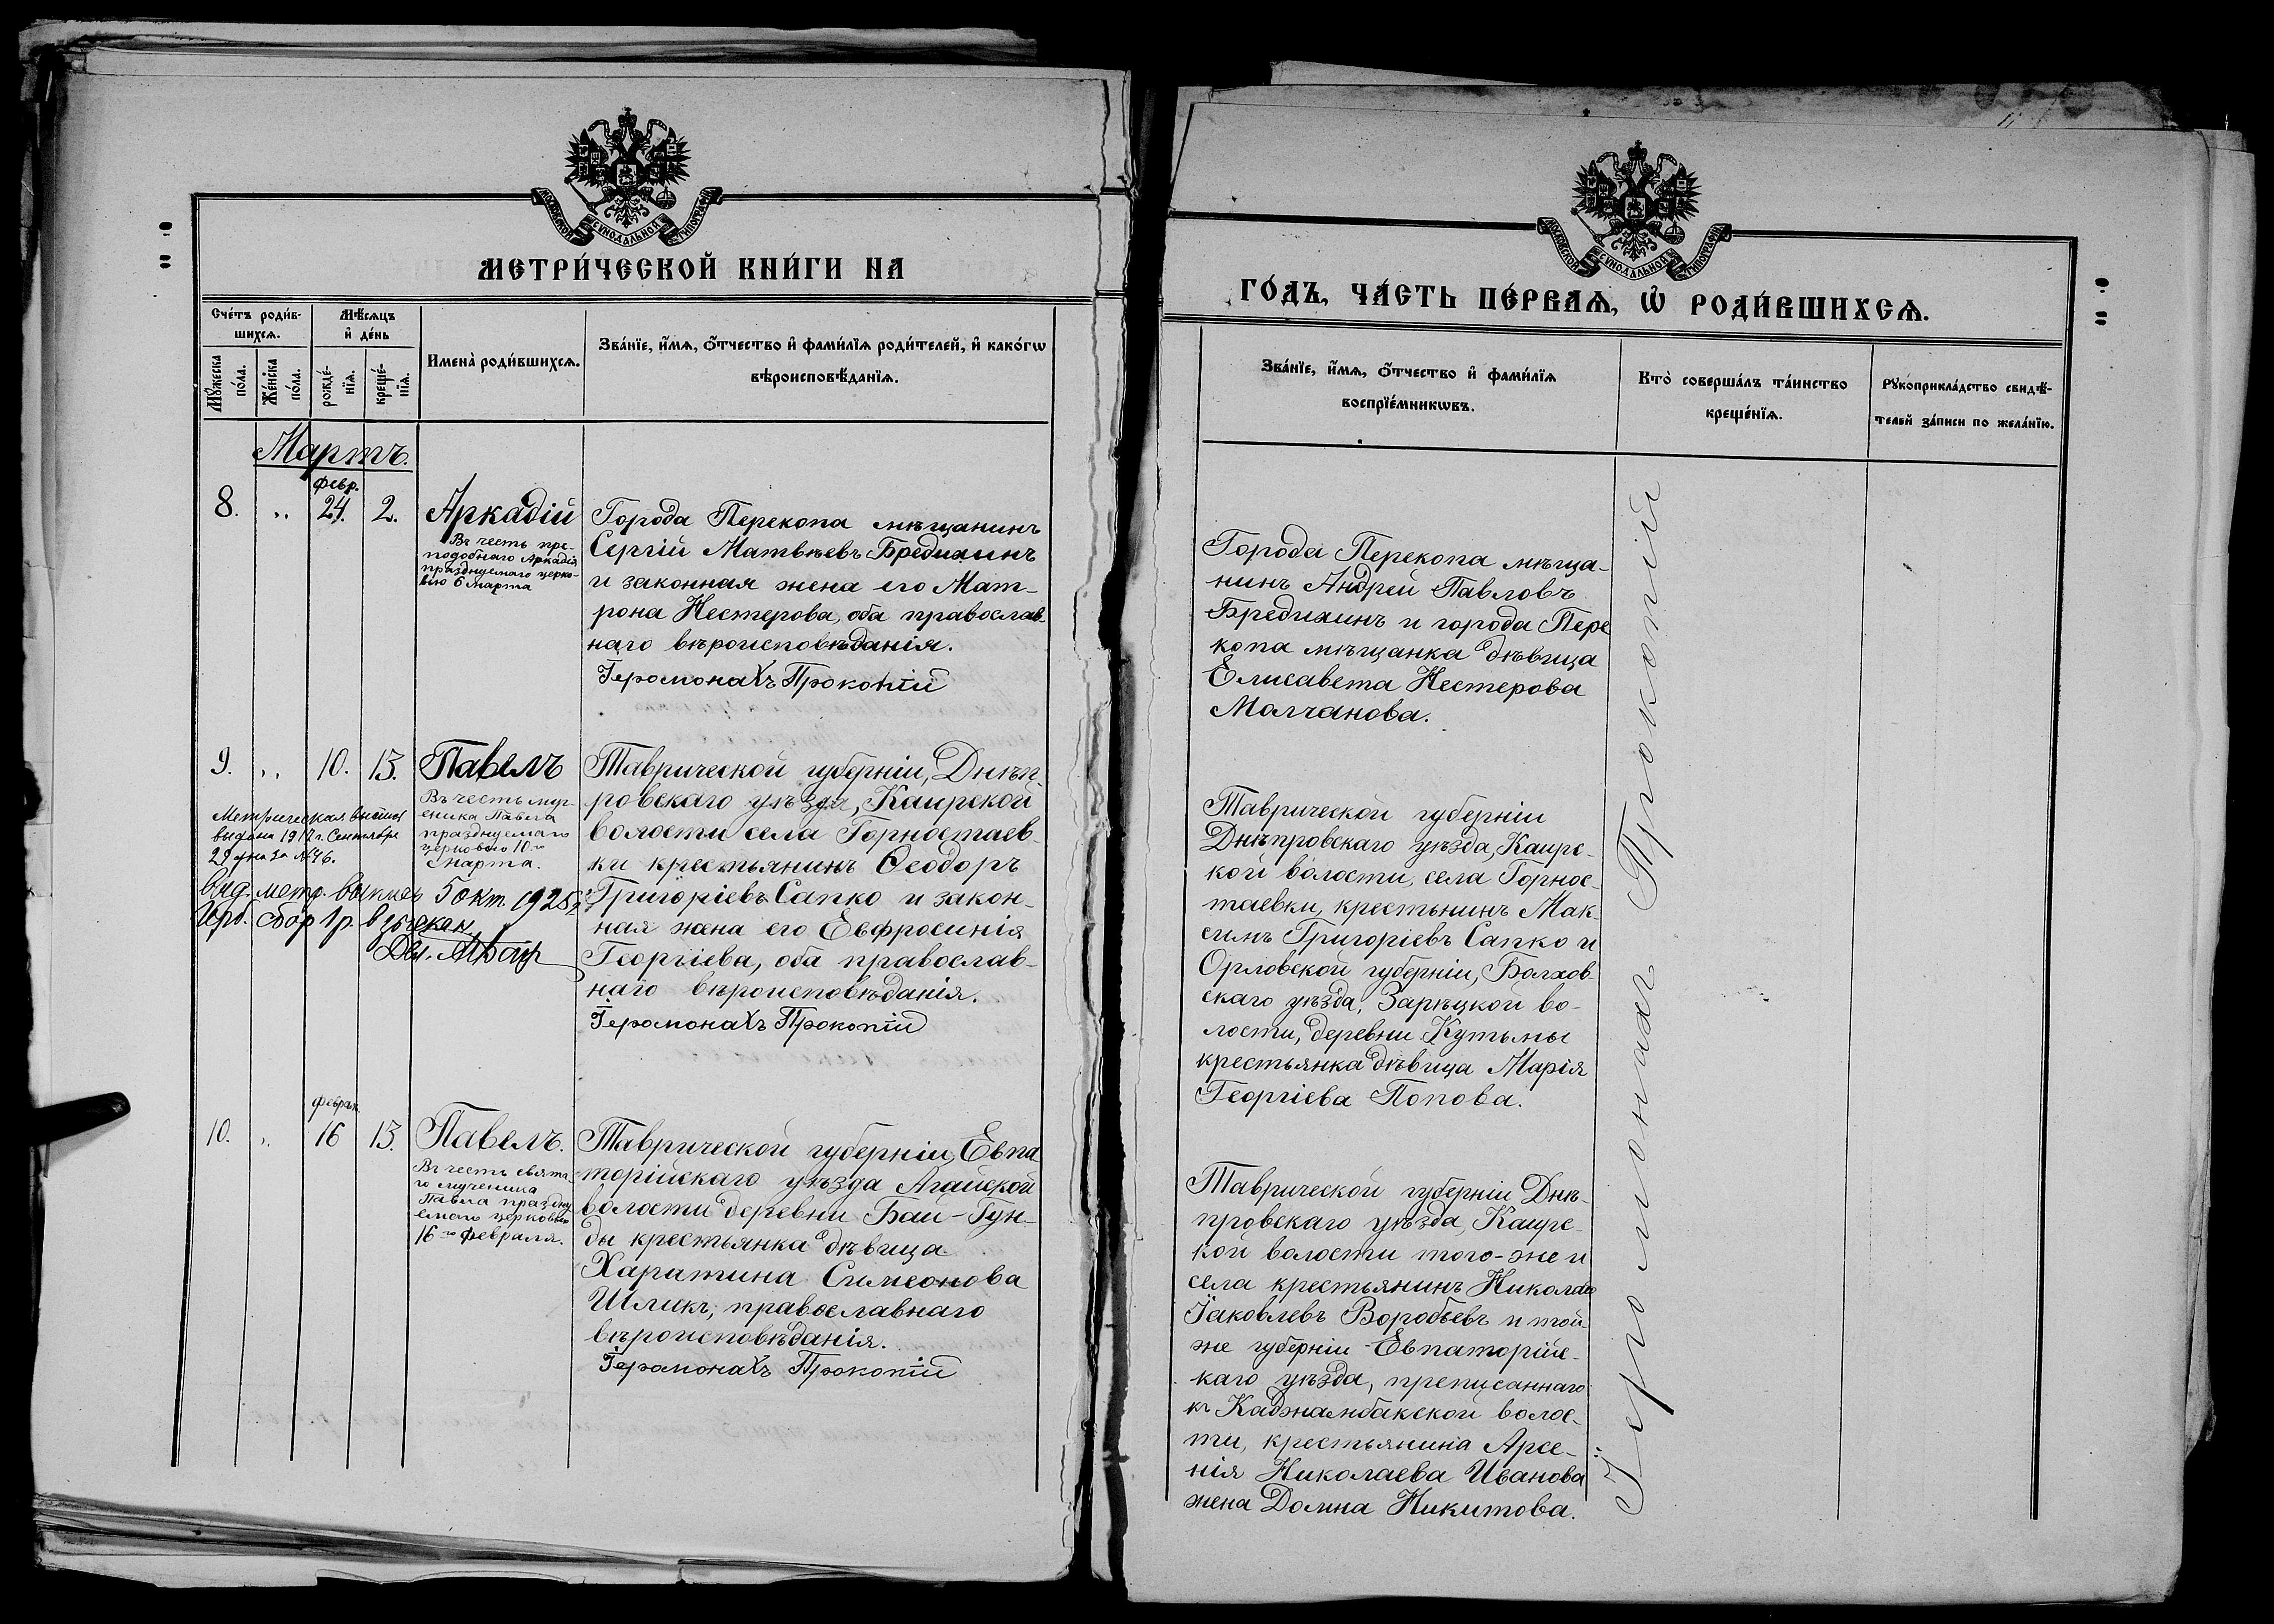 МОСКОВСКОЙ СУНОДАЛЬНОЙ ТИПОГРАФІИ
МЕТРИ́ЧЕСКОЙ КНИ́ГИ НА
Сче́тъ роди́в-
шихсѧ.
Мѣ́сѧцъ
и҆ де́нь
Мꙋ́жеска
по́ла.
Же́нска
по́ла.
рожде́-
нїѧ.
креще́-
нїѧ.
Имена̀ роди́вшихсѧ.
Зва́нїе, и҆́мѧ, ѻ҆́тчество и҆ фами́лїѧ роди́телей, и҆ како́гѡ
вѣроисповѣ́данїѧ.
Мартъ.
февр.
8. „ 24. 2. Аркадій
Въ честь пре-
подобнаго Аркадія
празднуемаго церко-
вію 6 марта
Города Перекопа мѣщанинъ
Сергій Матвѣевъ Бредихинъ
и законная жена его Мат-
рона Нестерова, оба православ-
наго вѣроисповѣданія.
Іеромонахъ Прокопій
9. „ 10. 13. Павелъ
Въ честь муч-
еника Павла
празднуемаго
церковью 10-го
марта.
Метрическая выпись
выдана 1917 г. Сентября
29 дня за №46.
выд. метр. выпись 5 окт. 1925 г.
сбор 1 р. взыскан
Таврической губерніи, Днѣп-
ровскаго уѣзда, Каирской
волости села Горностаев-
ки крестьянинъ Ѳеодоръ
Григоріевъ Сапко и закон-
ная жена его Евфросинія
Георгіева, оба православ-
наго вѣроисповѣданія.
Іеромонахъ Прокопій
10. „ 16 13. Павелъ.
Въ честь свята-
го мученика
Павла праздну
емаго церковью
16-го февраля.
Таврической губерніи, Евпа
торійскаго уѣзда Агайской
волости деревни Баи-Гун-
ды крестьянка дѣвица
Харатина Симеонова
Шликъ, православнаго
вѣроисповѣданія.
Іеромонахъ Прокопій
МОСКОВСКОЙ СУНОДАЛЬНОЙ ТИПОГРАФІИ
ГО́ДЪ, ЧА́СТЬ ПЕ́РВАѦ, Ѽ РОДИ́ВШИХСѦ.
Зва́нїе, и҆́мѧ, ѻ҆́тчество и҆ фами́лїѧ
воспрїе́мникѡвъ.
Кто̀ соверша́лъ та́инство
креще́нїѧ.
Рꙋкоприкла́дство свидѣ́-
телей за́писи по жела́нїю.
Города Перекопа мѣща-
нинъ Андрей Павловъ
Бредихинъ и города Пере
копа мѣщанка дѣвица
Елисавета Нестерова
Молчанова.
Таврической губерніи
Днѣпровскаго уѣзда, Каирс-
кой волости, села Горнос-
таевки, крестьнинъ Мак-
симъ Григоріевъ Сапко и
Орловской губерніи, Болхов-
скаго уѣзда, Зарѣцкой во-
лости, деревни Кутьмы
крестьянка дѣвица Марія
Георгіева Попова.
Таврической губерніи Днѣ-
провскаго уѣзда, Каирс-
кой волости того-же и
села крестьянинъ Николай
Іаковлевъ Воробьевъ и той-
же губерніи Евпаторійс-
каго уѣзда, преписаннаго
къ Каджамбакской волос-
ти, крестьянина Арсе-
нія Николаева Иванова
жена Домна Никитова.
Іеромонахъ Прокопій